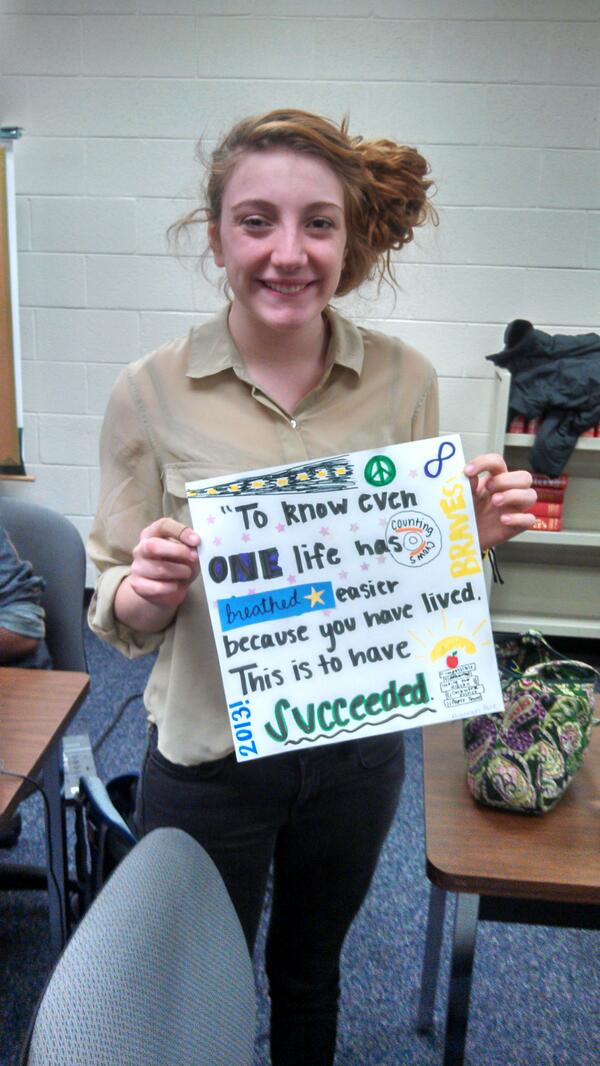 "To know even
ONE life has
Counting
Crows
breathed easier
because you have lived.
This is to have
Succeeded.
BRAVES!
2013!